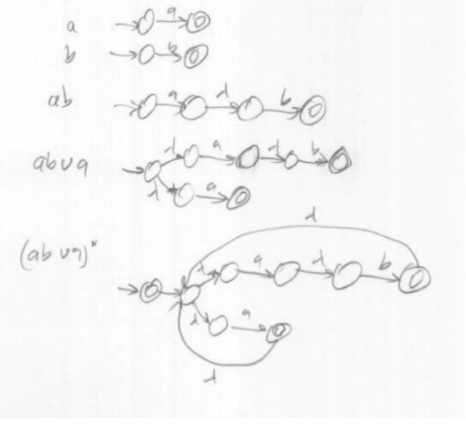 a a
b b
ab a λ b
ab∪a λ a λ b
λ a
λ
(ab∪a)* λ a λ b
λ a
λ